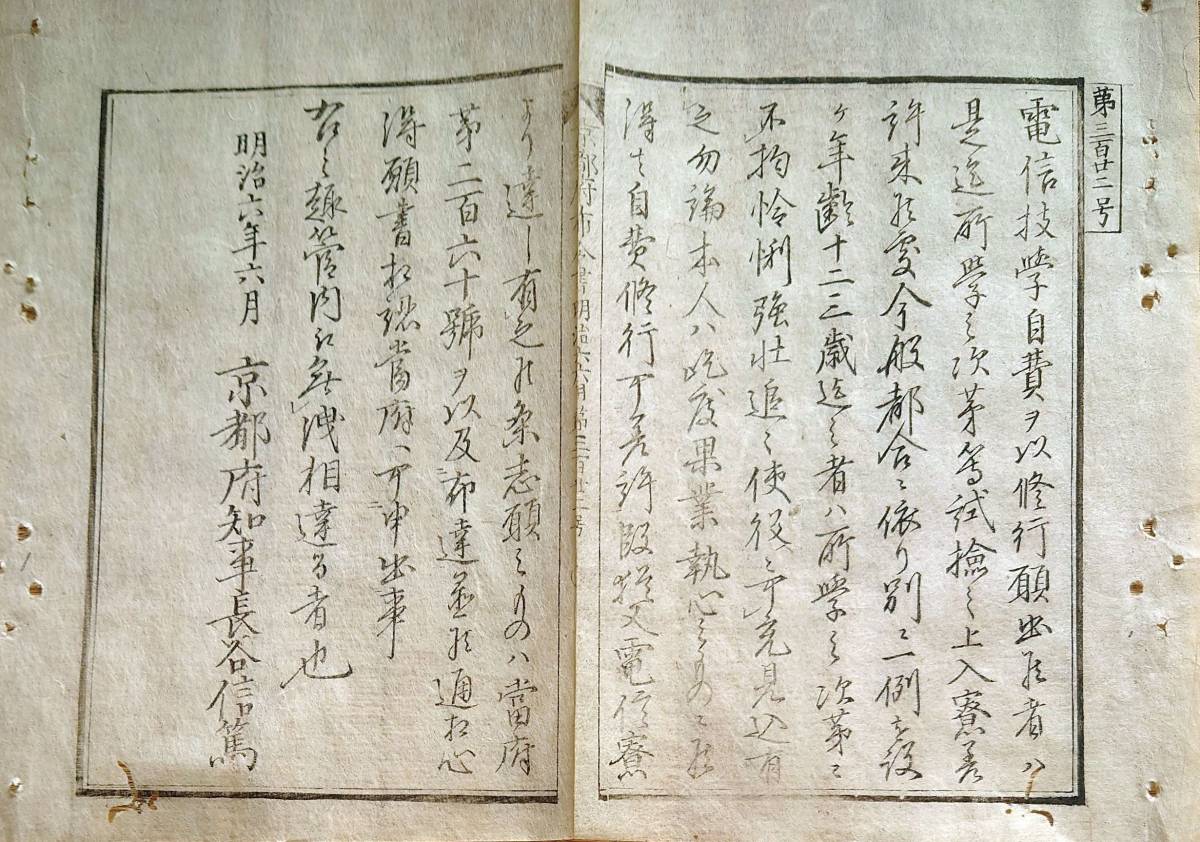 第三百廿二号
電信技學自費ヲ以修行願出候者ハ
是迄所學之次第等試撿之上入寮差
許来候處今般都合ニ依リ別ニ一例を設
ケ年齢十二三歳迄之者ハ所學之次第ニ
不拘怜悧強壮追々使役ニ可充見込有
之勿論本人ハ屹度果業執心之ものニ候
得は自費修行可差許段猶又電信寮
より達し有之候条志願之ものハ當府
第二百六十號ヲ以及布達置候通相心
得願書相認當府へ可申出事
右之趣管内江無洩相達る者也
明治六年六月
京都府知事長谷信篤
京都府布令書明治六年六月第三百廿二号